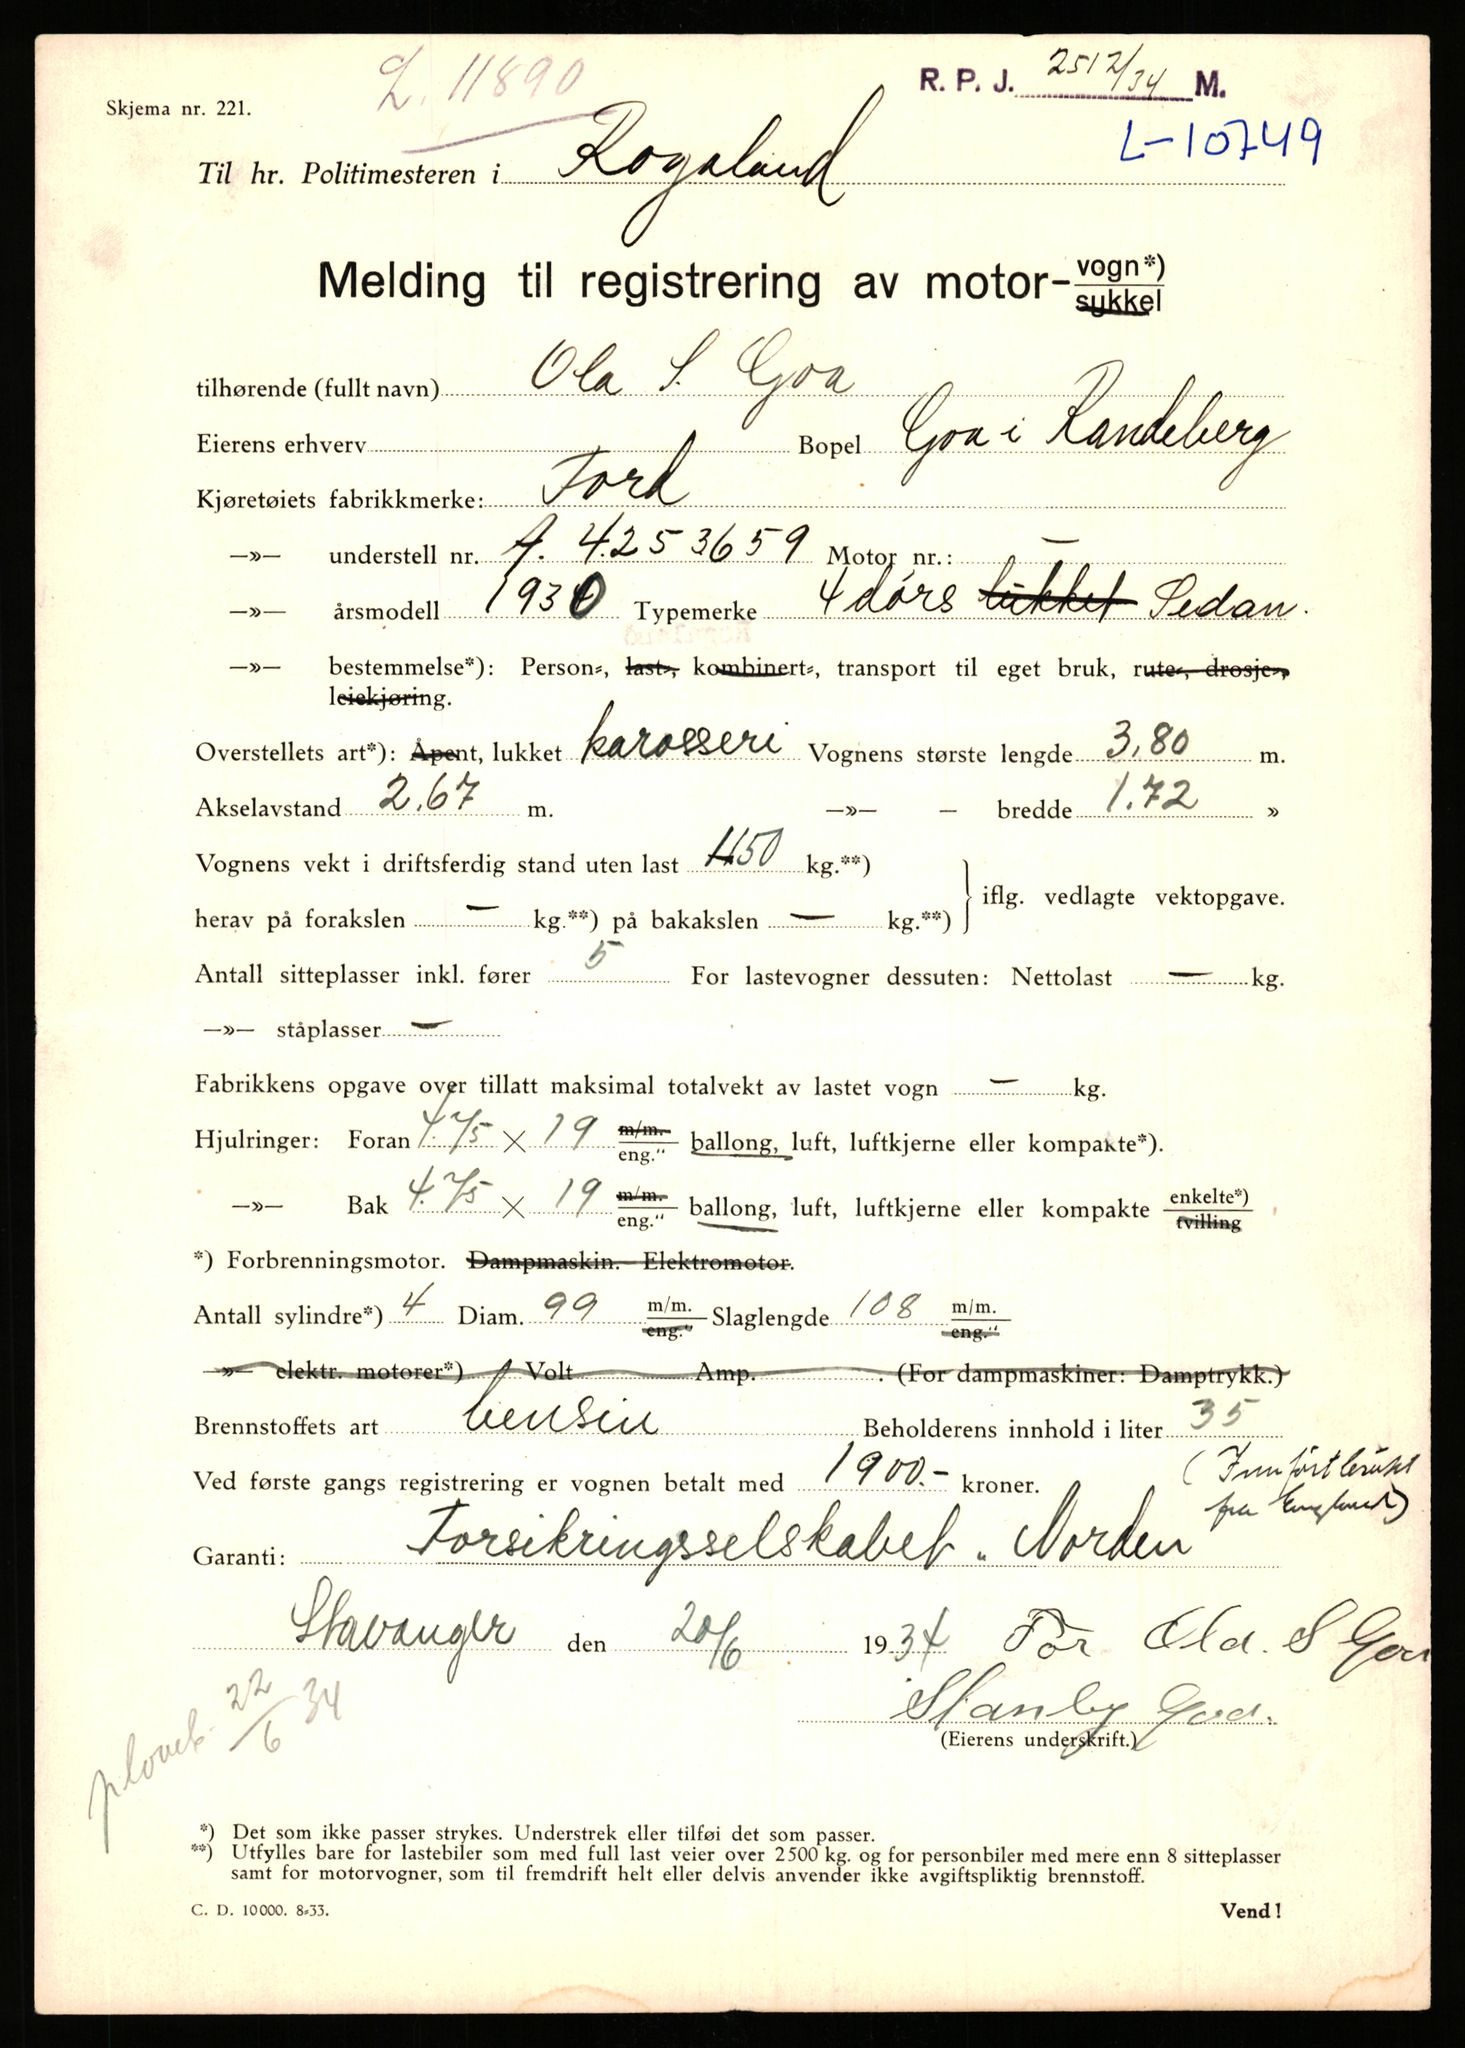 L. 11890
R. P. J. 2512/34 M.
Skjema nr. 221.
L-10749
Til hr. Politimesteren i Rogaland
Melding til registrering av motor- vogn*) / sykkel
tilhørende (fullt navn) Ola S. Goa
Eierens erhverv Bopel Goa i Randeberg
Kjøretøiets fabrikkmerke: Ford
—»— understell nr. A. 4253659 Motor nr.: —
—»— årsmodell 1930 Typemerke 4 dørs lukket Sedan.
—»— bestemmelse*): Person-, last-, kombinert-, transport til eget bruk, rute-, drosje-,
leiekjøring.
Overstellets art*): Åpent, lukket karosseri Vognens største lengde 3.80 m.
Akselavstand 2.67 m. —»— — bredde 1.72 »
Vognens vekt i driftsferdig stand uten last 1150 kg.**)
iflg. vedlagte vektopgave.
herav på forakslen — kg.**) på bakakslen — kg.**)
Antall sitteplasser inkl. fører 5 For lastevogner dessuten: Nettolast — kg.
—»— ståplasser —
Fabrikkens opgave over tillatt maksimal totalvekt av lastet vogn — kg.
Hjulringer: Foran 4.75 × 19 m/m. / eng." ballong, luft, luftkjerne eller kompakte*).
—»— Bak 4.75 × 19 m/m. / eng." ballong, luft, luftkjerne eller kompakte enkelte*) / tvilling
*) Forbrenningsmotor. Dampmaskin. Elektromotor.
Antall sylindre*) 4 Diam. 99 m/m. / eng." Slaglengde 108 m/m. / eng."
—»— elektr. motorer*) Volt Amp. . (For dampmaskiner: Damptrykk.)
Brennstoffets art bensin Beholderens innhold i liter 35
Ved første gangs registrering er vognen betalt med 1900.- kroner. (Innført brukt
fra England)
Garanti: Forsikringsselskabet "Norden
Stavanger den 20/6 1934 For Ola. S Goa
Stanley Goa.
(Eierens underskrift.)
22/6 34
*) Det som ikke passer strykes. Understrek eller tilføi det som passer.
**) Utfylles bare for lastebiler som med full last veier over 2500 kg. og for personbiler med mere enn 8 sitteplasser
samt for motorvogner, som til fremdrift helt eller delvis anvender ikke avgiftspliktig brennstoff.
C. D. 10000. 8-33.
Vend!